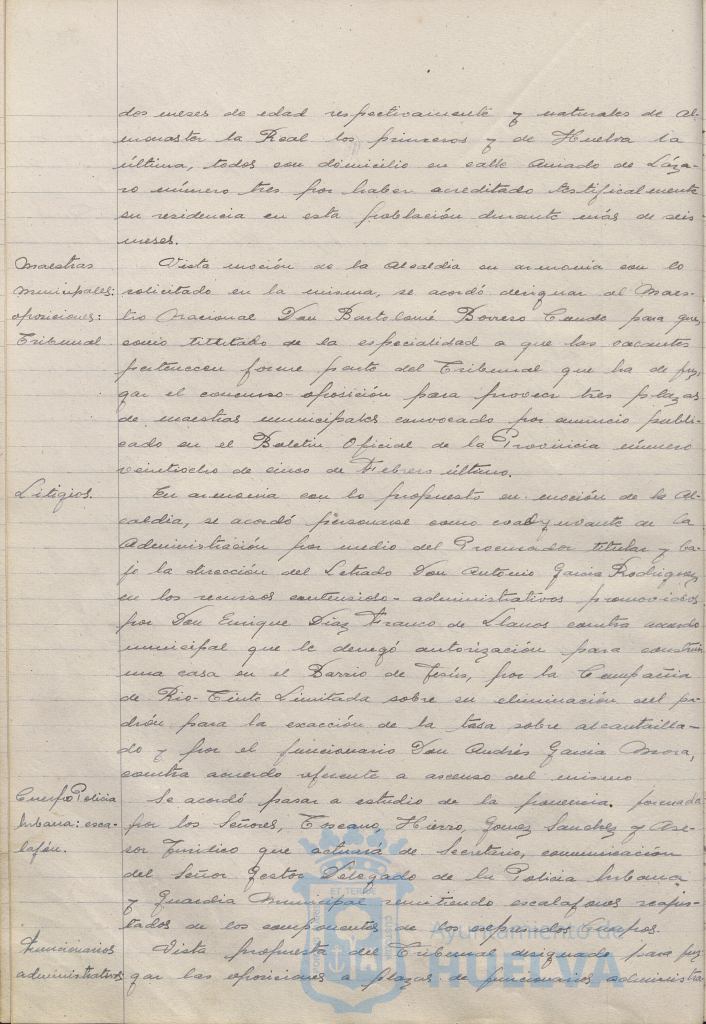 dos meses de edad respectivamente y naturales de Al-
monaster la Real los primeros y de Huelva la
última, todos con domicilio en calle Amado de Láza-
ro número tres por haber acreditado testificalmente
su residencia en esta población durante más de seis
meses.
Maestras
municipales:
oposiciones:
Tribunal
Vista moción de la Alcaldia en armonia con lo
solicitado en la misma, se acordó designar al Maes-
tro Nacional Don Bartolomé Borrero Conde para que
como titulado de la especialidad a que las vacantes
pertenecen forme parte del Tribunal que ha de juz-
gar el concurso-oposición para proveer tres plazas
de maestras municipales convocado por anuncio publi-
cado en el Boletin Oficial de la Provincia número
veintiocho de cinco de Febrero último.
Litigios.
En armonia con lo propuesto en moción de la Al-
caldia, se acordó personarse como coadyuvante de la
Administración por medio del Procurador titular y ba-
jo la dirección del Letrado Don Antonio Garcia Rodriguez
en los recursos contencioso-administrativos promovidos
por Don Enrique Diaz Franco de Llanos contra acuerdo
municipal que le denegó autorización para construir
una casa en el Barrio de Jesús, por la Compañia
de Rio-Tinto Limitada sobre su eliminación del pa-
drón para la exacción de la tasa sobre alcantarilla-
do y por el funcionario Don Andrés Garcia Mora,
contra acuerdo referente a ascenso del mismo
Cuerpo Policia
Urbana: esca-
lafón.
Se acordó pasar a estudio de la ponencia formada
por los Señores, Toscano, Hierro, Gomez Sanchez y Ase-
sor Juridico que actuará de Secretario, comunicación
del Señor Gestor Delegado de la Policia Urbana
y Guardia Municipal remitiendo escalafones reajus-
tados de los componentes de los expresados Cuerpos.
Funcionarios
administrativos
Vista propuesta del Tribunal designado para juz-
gar las oposiciones a plazas de funcionarios administra-
Ayuntamiento de
HUELVA